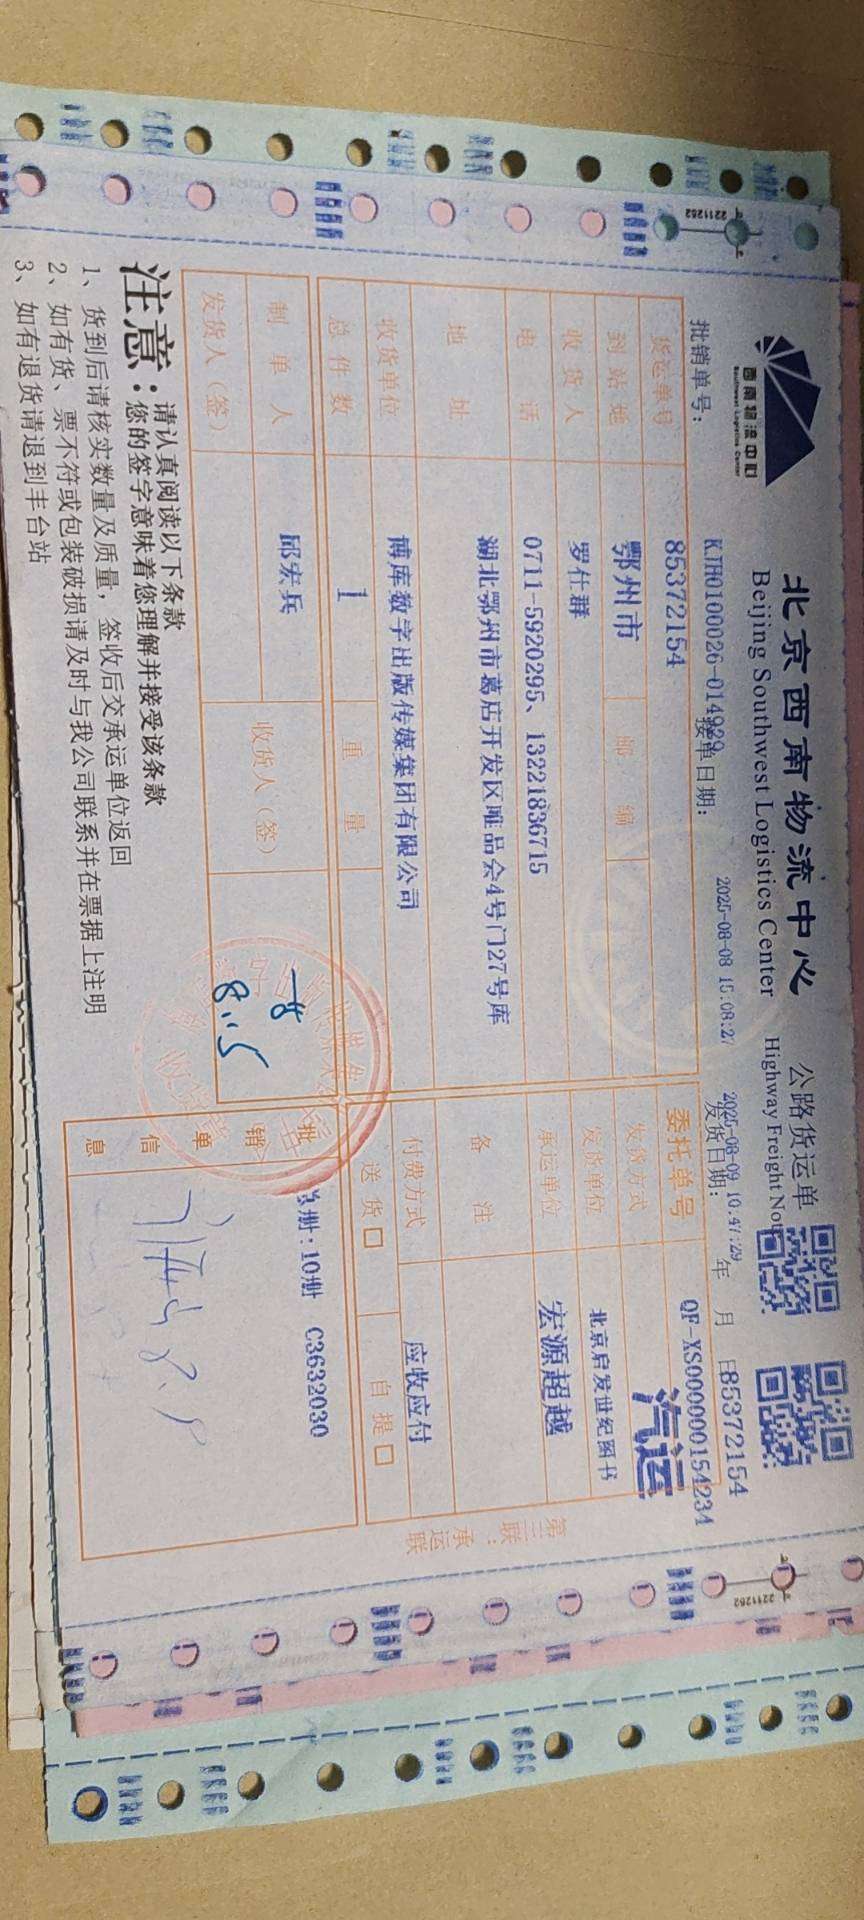 西南物流中心
Southwest Logistics Center
北京西南物流中心 公路货运单
Beijing Southwest Logistics Center Highway Freight Note
批销单号： KJH0100026-014929 接单日期： 2025-08-08 15:08:27 发货日期： 年 月 日
2025-08-09 10:47:29
85372154
货运单号 85372154 委托单号 QF-XS000000154234
到站地 鄂州市 邮编 发货方式 汽运
收货人 罗仕群 发货单位 北京启发世纪图书
电话 0711-5920295、13221836715 承运单位 宏源超越
地址 湖北鄂州市葛店开发区唯品会4号门27号库 备注
收货单位 博库数字出版传媒集团有限公司 付费方式 应收应付
总件数 1 重量 送货 自提
制单人 邱宏兵 收货人（签） 一件
8.15
发货人（签）
批销单信息 总册：10册 C3632030
8.9
第三联：承运联
注意：请认真阅读以下条款
您的签字意味着您理解并接受该条款
1、货到后请核实数量及质量，签收后交承运单位返回
2、如有货、票不符或包装破损请及时与我公司联系并在票据上注明
3、如有退货请退到丰台站
2211262
2211262